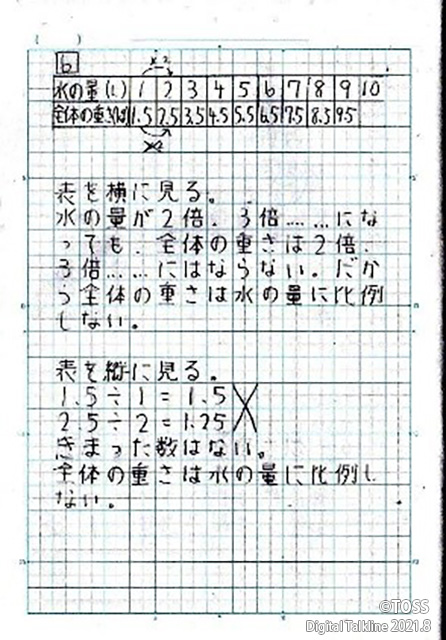 ( )
6
×2
水の量(L) 1 2 3 4 5 6 7 8 9 10
全体の重さ(kg) 1.5 2.5 3.5 4.5 5.5 6.5 7.5 8.5 9.5
×2
表を横に見る。
水の量が2倍、3倍……にな
っても、全体の重さは2倍、
3倍……にはならない。だか
ら全体の重さは水の量に比例
しない。
表を縦に見る。
1.5÷1=1.5
2.5÷2=1.25
きまった数はない。
全体の重さは水の量に比例し
ない。
©TOSS
Digital Talkline 2021.8